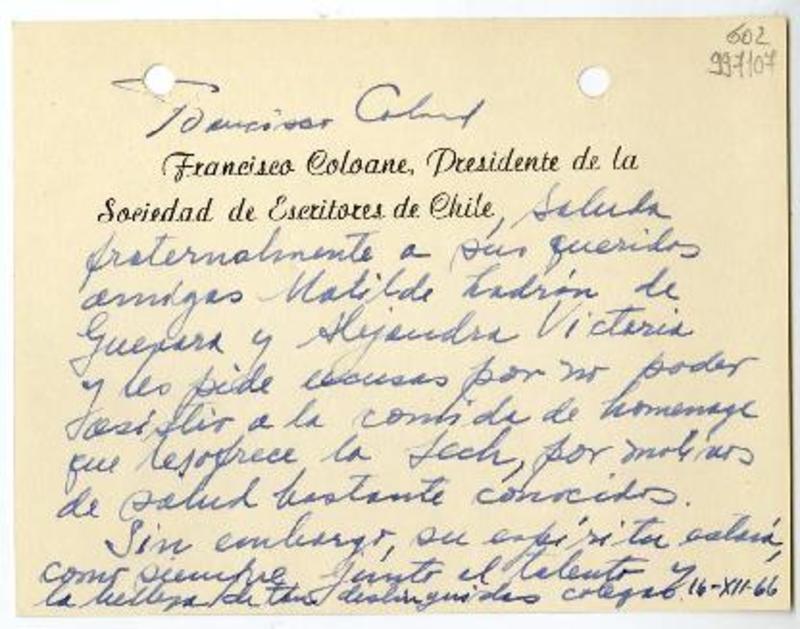 602
997107
Francisco Coloane
Francisco Coloane, Presidente de la
Sociedad de Escritores de Chile, saluda
fraternalmente a sus queridas
amigas Matilde Ladrón de
Guevara y Alejandra Victoria
y les pide excusas por no poder
asistir a la comida de homenage
que les ofrece la Sech, por motivos
de salud bastante conocidos.
Sin embargo, su espíritu estará,
como siempre junto al talento y
la belleza de tan distinguidas colegas. 16-XII-66